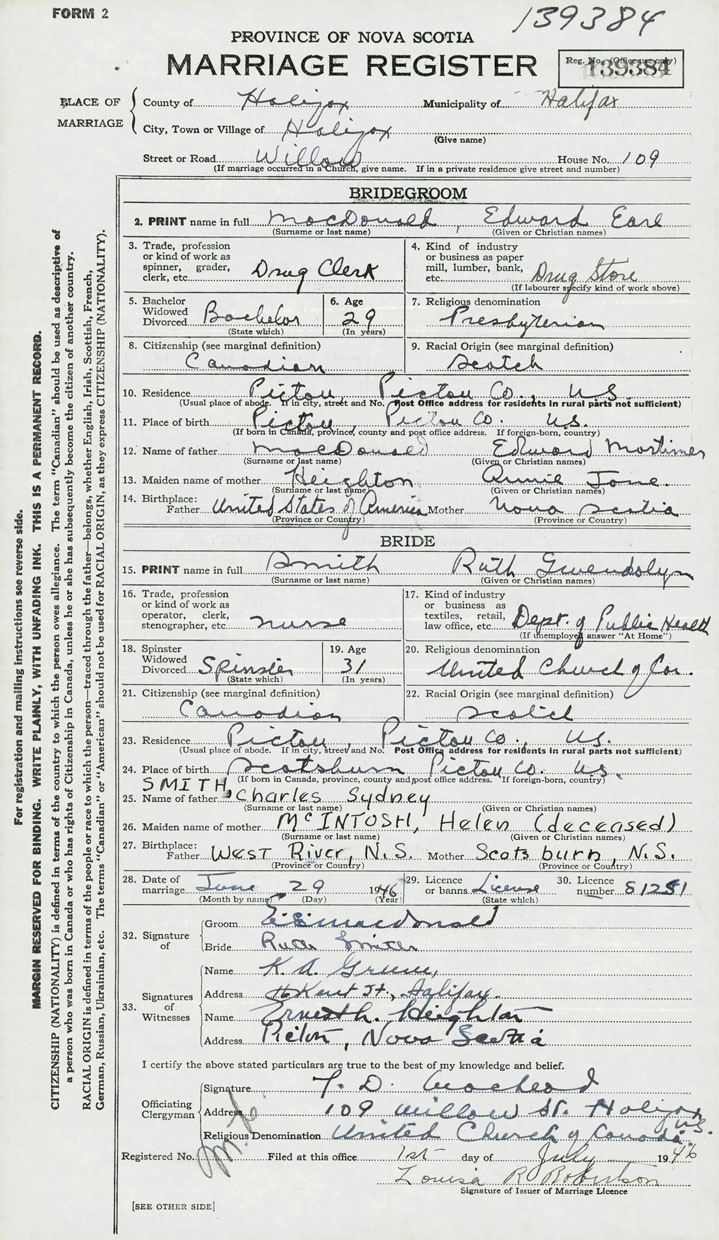 FORM 2
139384
PROVINCE OF NOVA SCOTIA
MARRIAGE REGISTER
Reg. No. (Office use only)
139384
PLACE OF MARRIAGE
County of Halifax Municipality of Halifax
City, Town or Village of Halifax
(Give name)
Street or Road Willow House No. 109
(If marriage occurred in a Church, give name. If in a private residence give street and number)
BRIDEGROOM
2. PRINT name in full MacDonald, Edward Earl
(Surname or last name) (Given or Christian names)
3. Trade, profession or kind of work as spinner, grader, clerk, etc. Drug Clerk
4. Kind of industry or business as paper mill, lumber, bank, etc. Drug Store
(If labourer specify kind of work above)
5. Bachelor Widowed Divorced Bachelor
(State which)
6. Age 29
(In years)
7. Religious denomination
Presbyterian
8. Citizenship (see marginal definition)
Canadian
9. Racial Origin (see marginal definition)
Scotch
10. Residence Pictou, Pictou Co., N.S.
(Usual place of abode. If in city, street and No. Post Office address for residents in rural parts not sufficient)
11. Place of birth Pictou, Pictou Co. N.S.
(If born in Canada, province, county and post office address. If foreign-born, country)
12. Name of father MacDonald Edward Mortimer
(Surname or last name) (Given or Christian names)
13. Maiden name of mother Heighton Annie Jane.
(Surname or last name) (Given or Christian names)
14. Birthplace:
Father United States of America Mother Nova Scotia
(Province or Country) (Province or Country)
BRIDE
15. PRINT name in full Smith Ruth Gwendolyn
(Surname or last name) (Given or Christian names)
16. Trade, profession or kind of work as operator, clerk, stenographer, etc. nurse
17. Kind of industry or business as textiles, retail, law office, etc. Dept. of Public Health
(If unemployed answer "At Home")
18. Spinster Widowed Divorced Spinster
(State which)
19. Age 31
(In years)
20. Religious denomination
United Church of Can.
21. Citizenship (see marginal definition)
Canadian
22. Racial Origin (see marginal definition)
Scotch
23. Residence Pictou, Pictou Co., N.S.
(Usual place of abode. If in city, street and No. Post Office address for residents in rural parts not sufficient)
24. Place of birth Scotsburn Pictou Co. N.S.
(If born in Canada, province, county and post office address. If foreign-born, country)
25. Name of father SMITH, Charles Sydney
(Surname or last name) (Given or Christian names)
26. Maiden name of mother McINTOSH, Helen (deceased)
(Surname or last name) (Given or Christian names)
27. Birthplace:
Father West River, N.S. Mother Scotsburn, N.S.
(Province or Country) (Province or Country)
28. Date of marriage June 29 1946
(Month by name) (Day) (Year)
29. Licence or banns License
(State which)
30. Licence number 81251
32. Signature of
Groom E. E. MacDonald
Bride Ruth Smith
33. Signatures of Witnesses
Name K. A. Greene,
Address Kent St., Halifax.
Name Ernest L. Heighton
Address Pictou, Nova Scotia
I certify the above stated particulars are true to the best of my knowledge and belief.
Officiating Clergyman
Signature
Address 109 Willow St. Halifax N.S.
Religious Denomination United Church of Canada.
Registered No. Filed at this office 1st day of July 1946
Louisa R Robertson
Signature of Issuer of Marriage Licence
[SEE OTHER SIDE]
For registration and mailing instructions see reverse side.
MARGIN RESERVED FOR BINDING. WRITE PLAINLY, WITH UNFADING INK. THIS IS A PERMANENT RECORD.
CITIZENSHIP (NATIONALITY) is defined in terms of the country to which the person owes allegiance. The term "Canadian" should be used as descriptive of
a person who was born in Canada or who has rights of Citizenship in Canada, unless he or she has subsequently become the citizen of another country.
RACIAL ORIGIN is defined in terms of the people or race to which the person—traced through the father—belongs, whether English, Irish, Scottish, French,
German, Russian, Ukrainian, etc. The terms "Canadian" or "American" should not be used for RACIAL ORIGIN, as they express CITIZENSHIP (NATIONALITY).